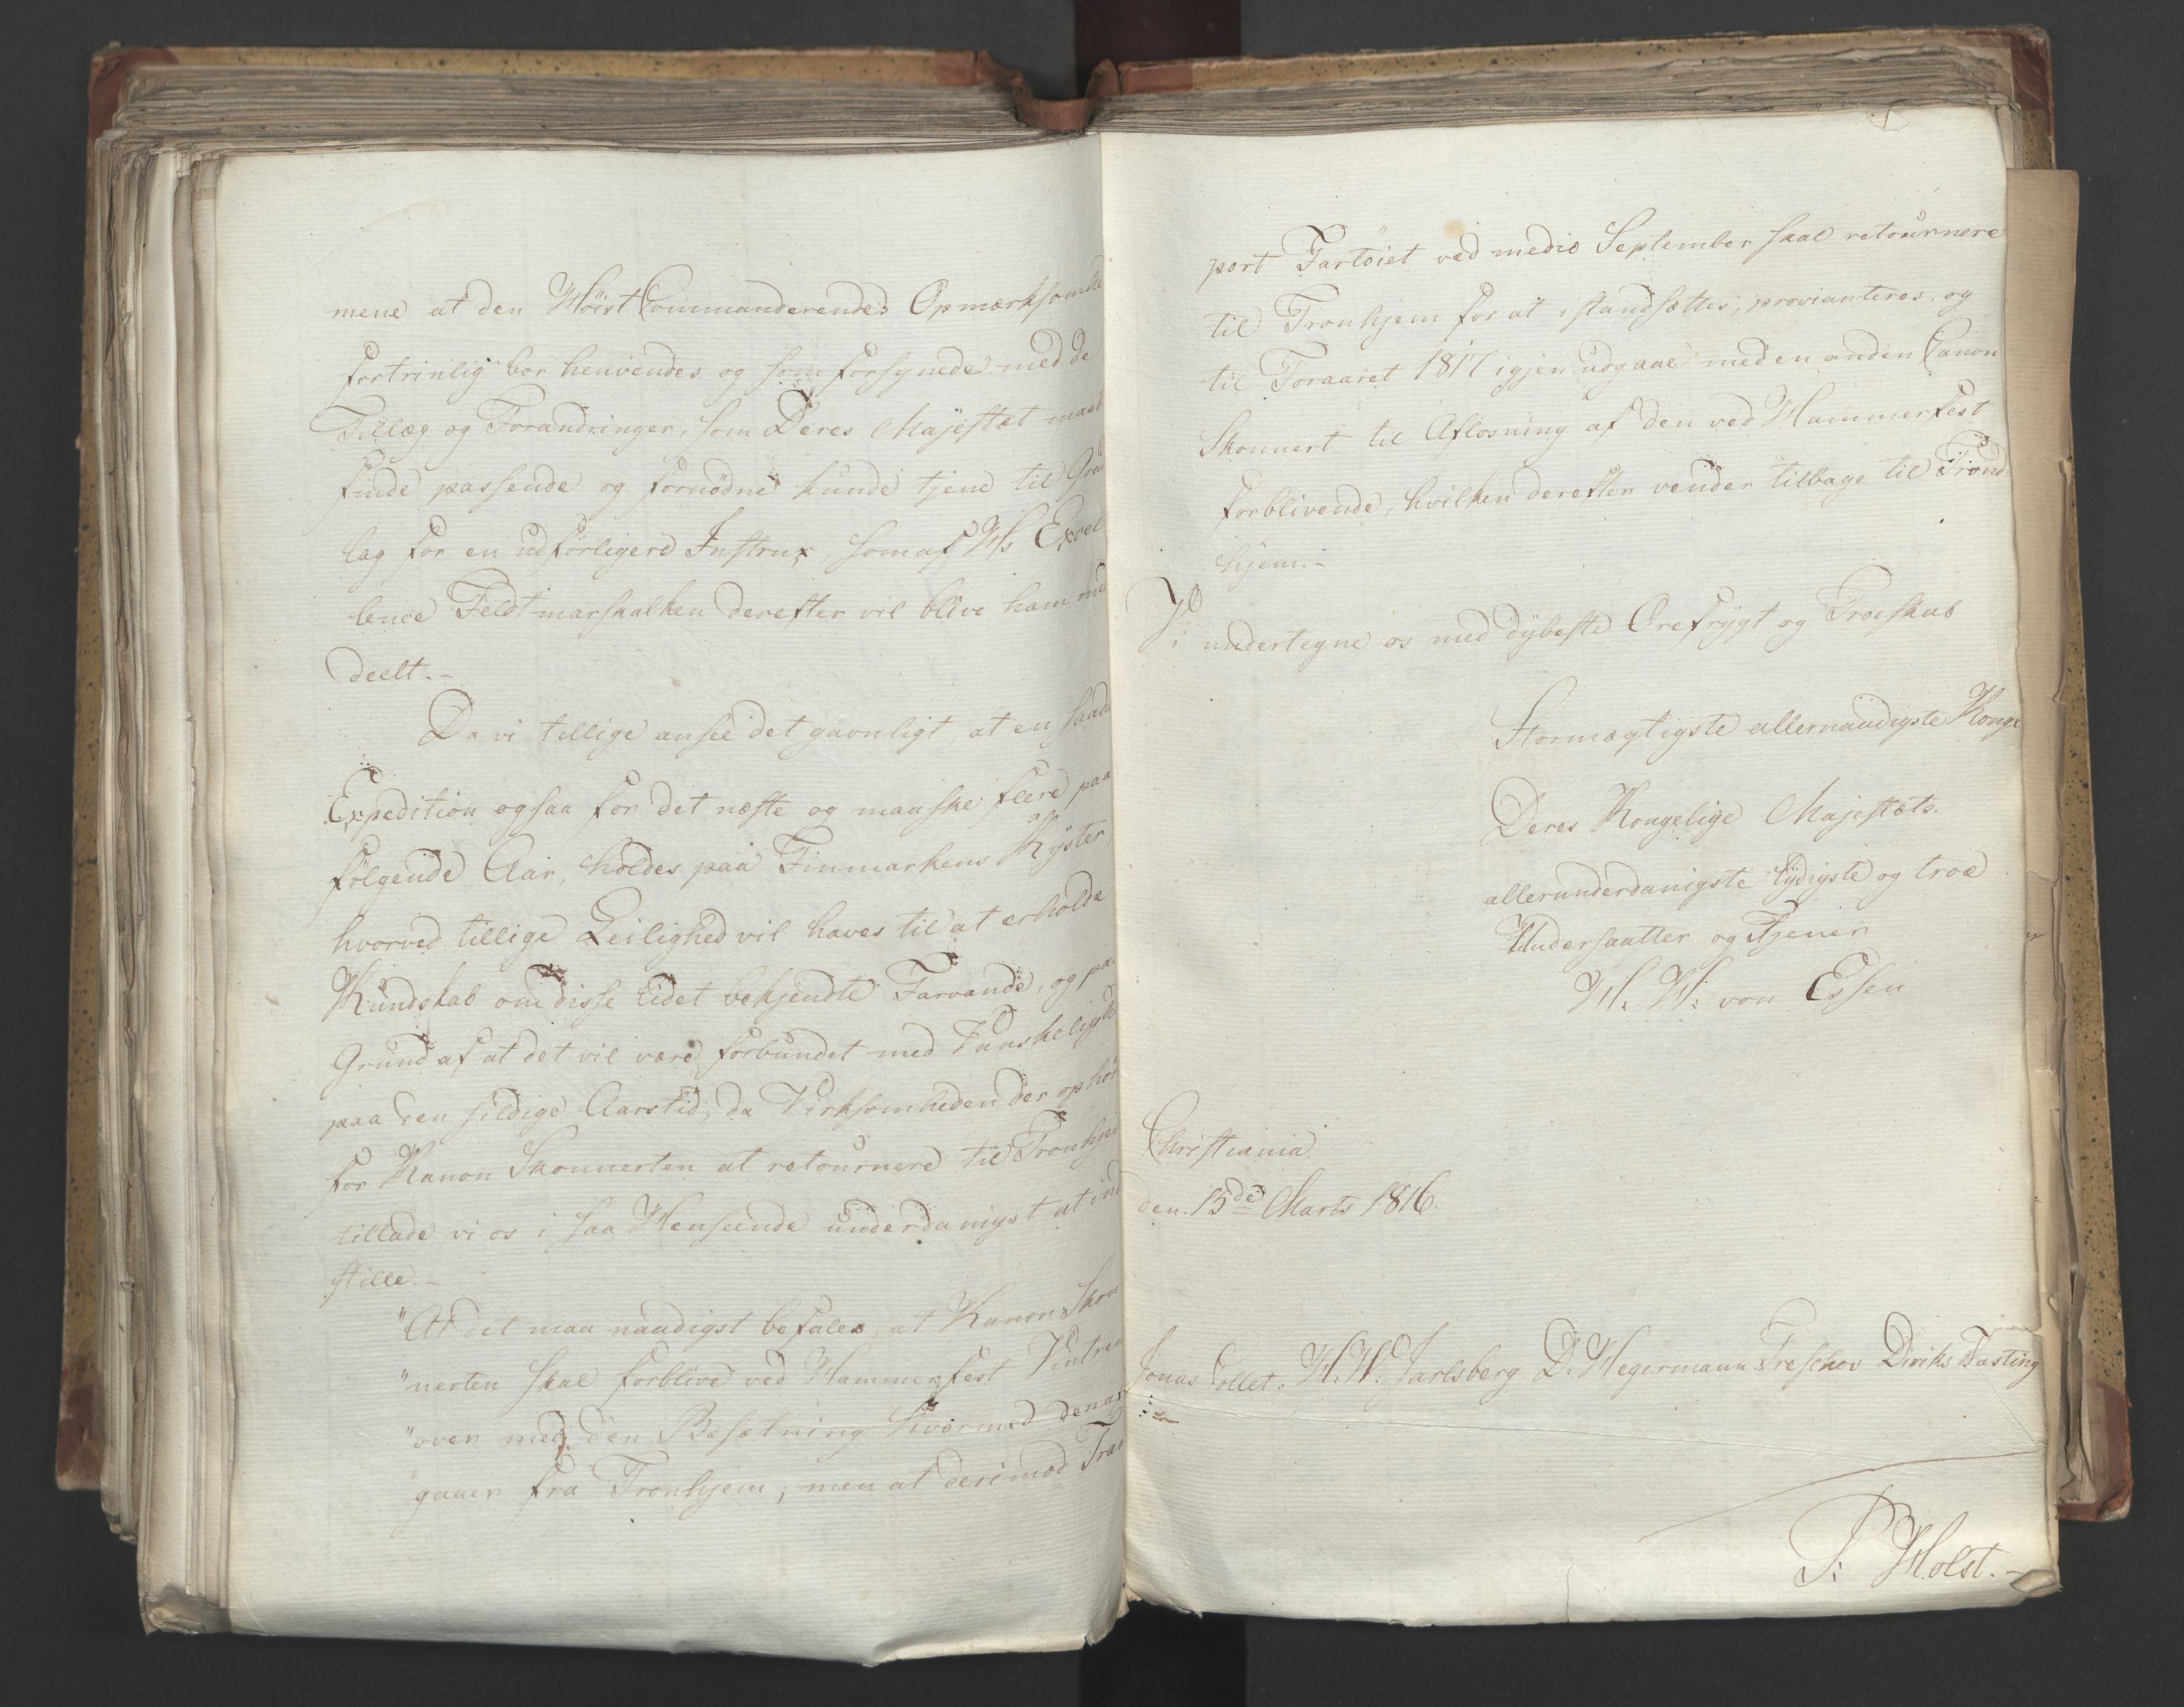 mene at den Höist Commanderendes Opmærksomhe
fortrinlig bor henvendes og som forsynede med de
Tillæg og Forandringer, som Deres Majestæt maat
finde passende og fornödne kunde tjene til Grund
lag for en udförligere Instrux, som af H: Excel
lence Feldtmarskalken derefter vil blive ham med
deelt.-
Da vi tillige ansee det gavnligt, at en saad
Expedition ogsaa for det næste og maaske flere paa
fölgende Aar, holdes paa Finmarkens Kyster,
hvorved tillige Leilighed vil haves til at erholde
Kundskab om disse lidet bekjendte Farvande, og paa
Grund af at det vil være forbundet med Vanskelighe
paa den sildige Aarstid, da Virksomheden der ophör
for Kanon Skonnerten at retournere til Tronhjem
tillade vi os i saa Henseende underdanigst at ind
stille.-
"At det maa naadigst befales, at Kanon Skon
"nerten skal forblive ved Hammerfest Vintren
"over med den Besætning hvormed den af
"gaaer fra Tronhjem, men at derimod Tran
port Fartöiet ved medio September skal retournere
til Tronhjem for at istandsættes, provianteres, og
til Foraaret 1817 igjen udgaae med en anden Canon
Skonnert til Aflösning af den ved Hammerfest
forblivende, hvilken derefter vender tilbage til Trond
hjem.-
Vi undertegne os med dybeste Ærefrygt og Troeskab
Stormægtigste allernaadigste Konge
Deres Kongelige Majestæts.
allerunderdanigste lydigste og troe
Undersaatter og Tjener
H: H: von Essen
Christiania
den 15de Marts 1816.
Jonas Collet. H: W: Jarlsberg D: Hegermann Treschov Diriks Fasting
P: Holst.-